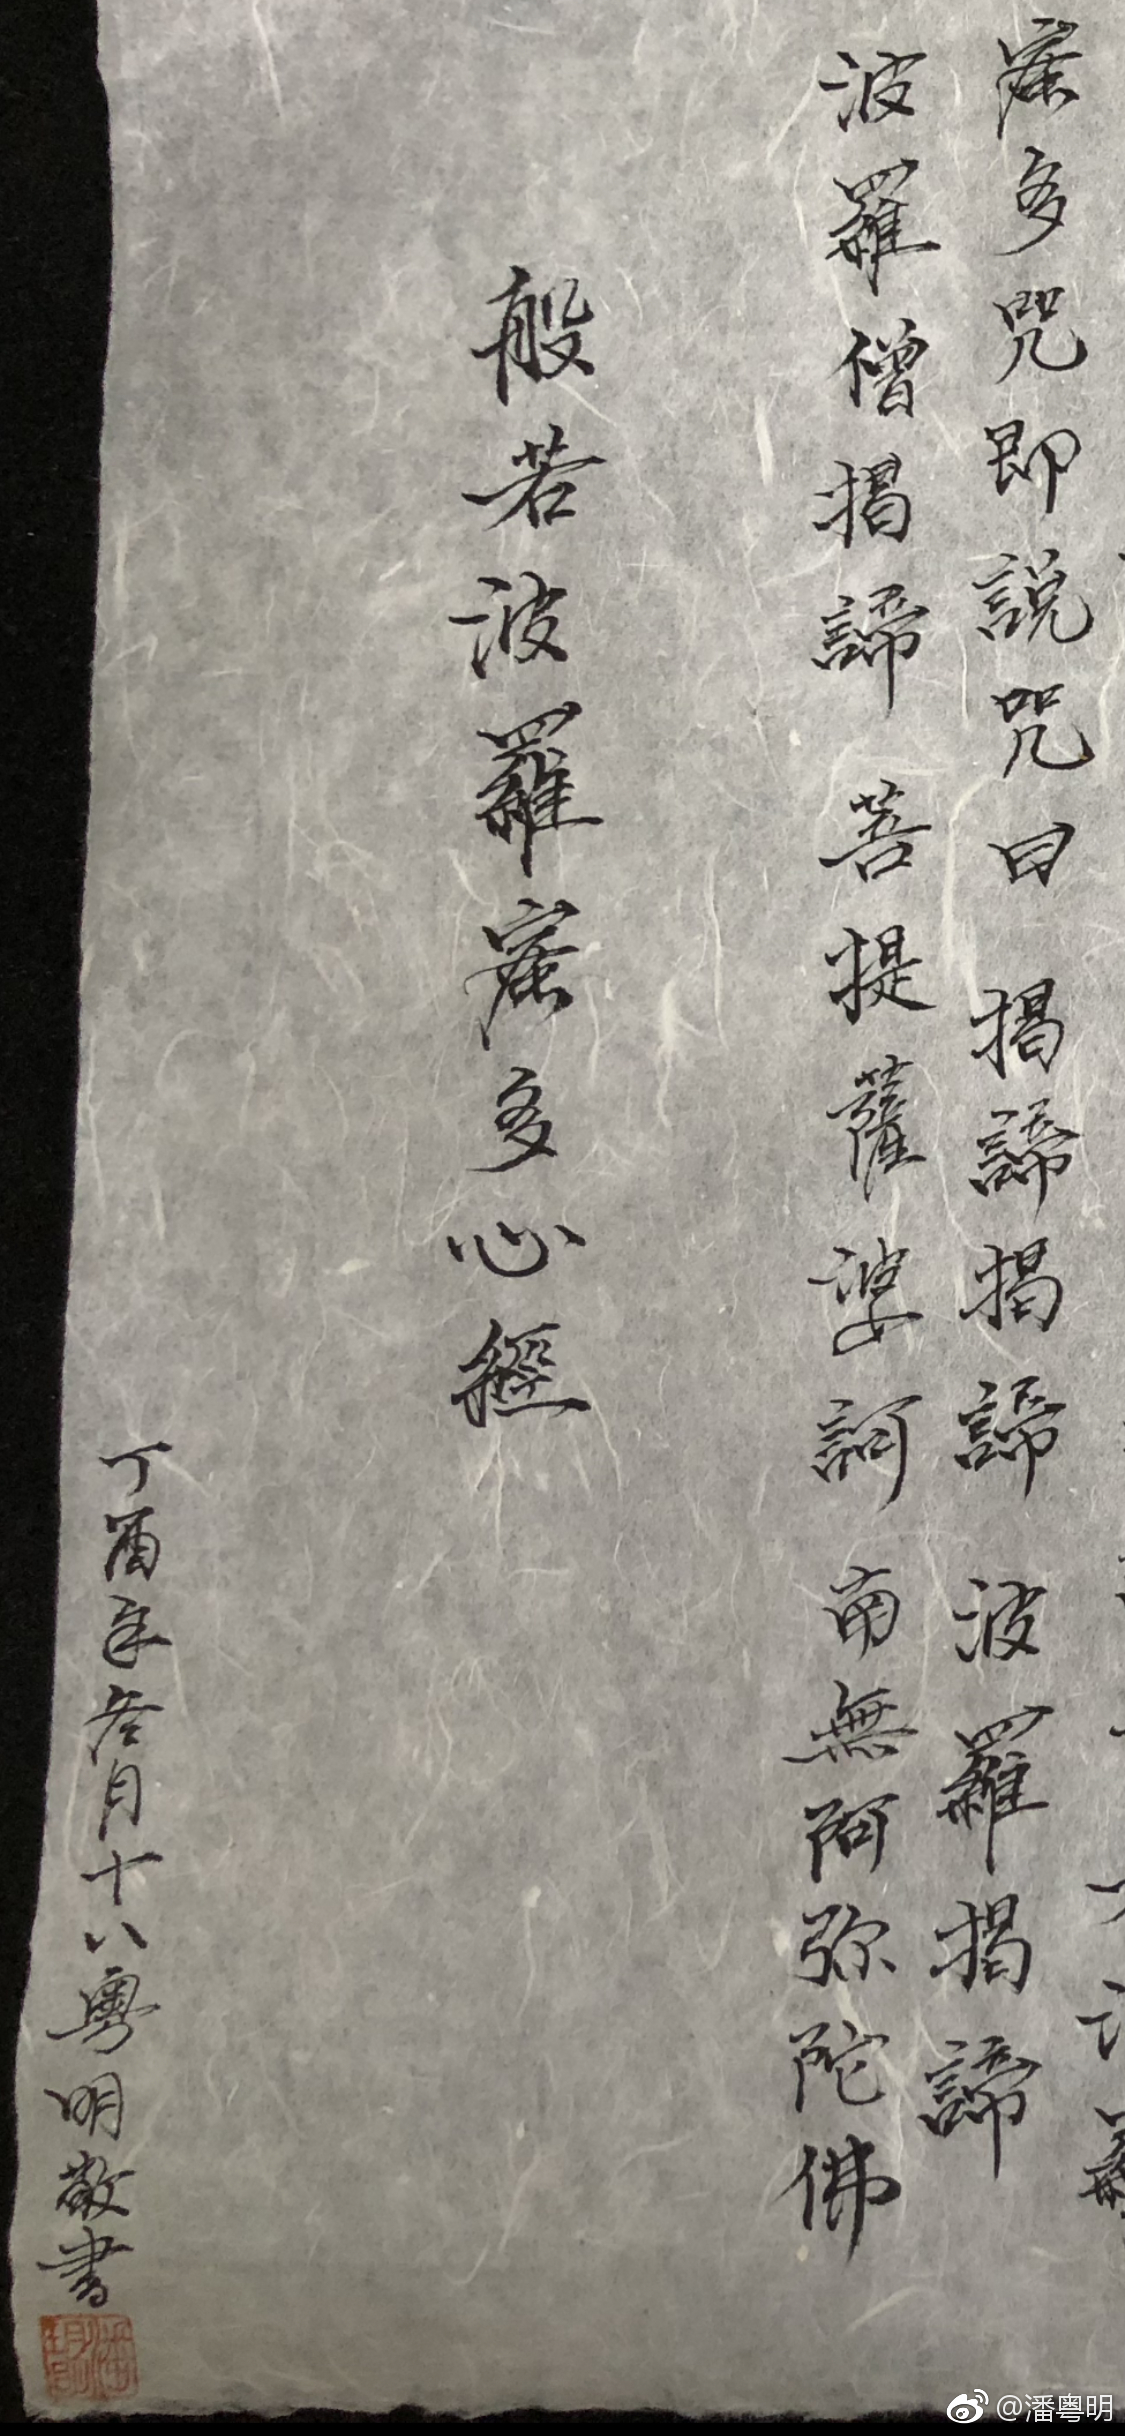 蜜多咒即説咒曰 揭諦揭諦 波羅揭諦
波羅僧揭諦 菩提薩婆訶 南無阿弥陀佛
般若波羅蜜多心經
丁酉年叁月十八粤明敬書
@潘粤明